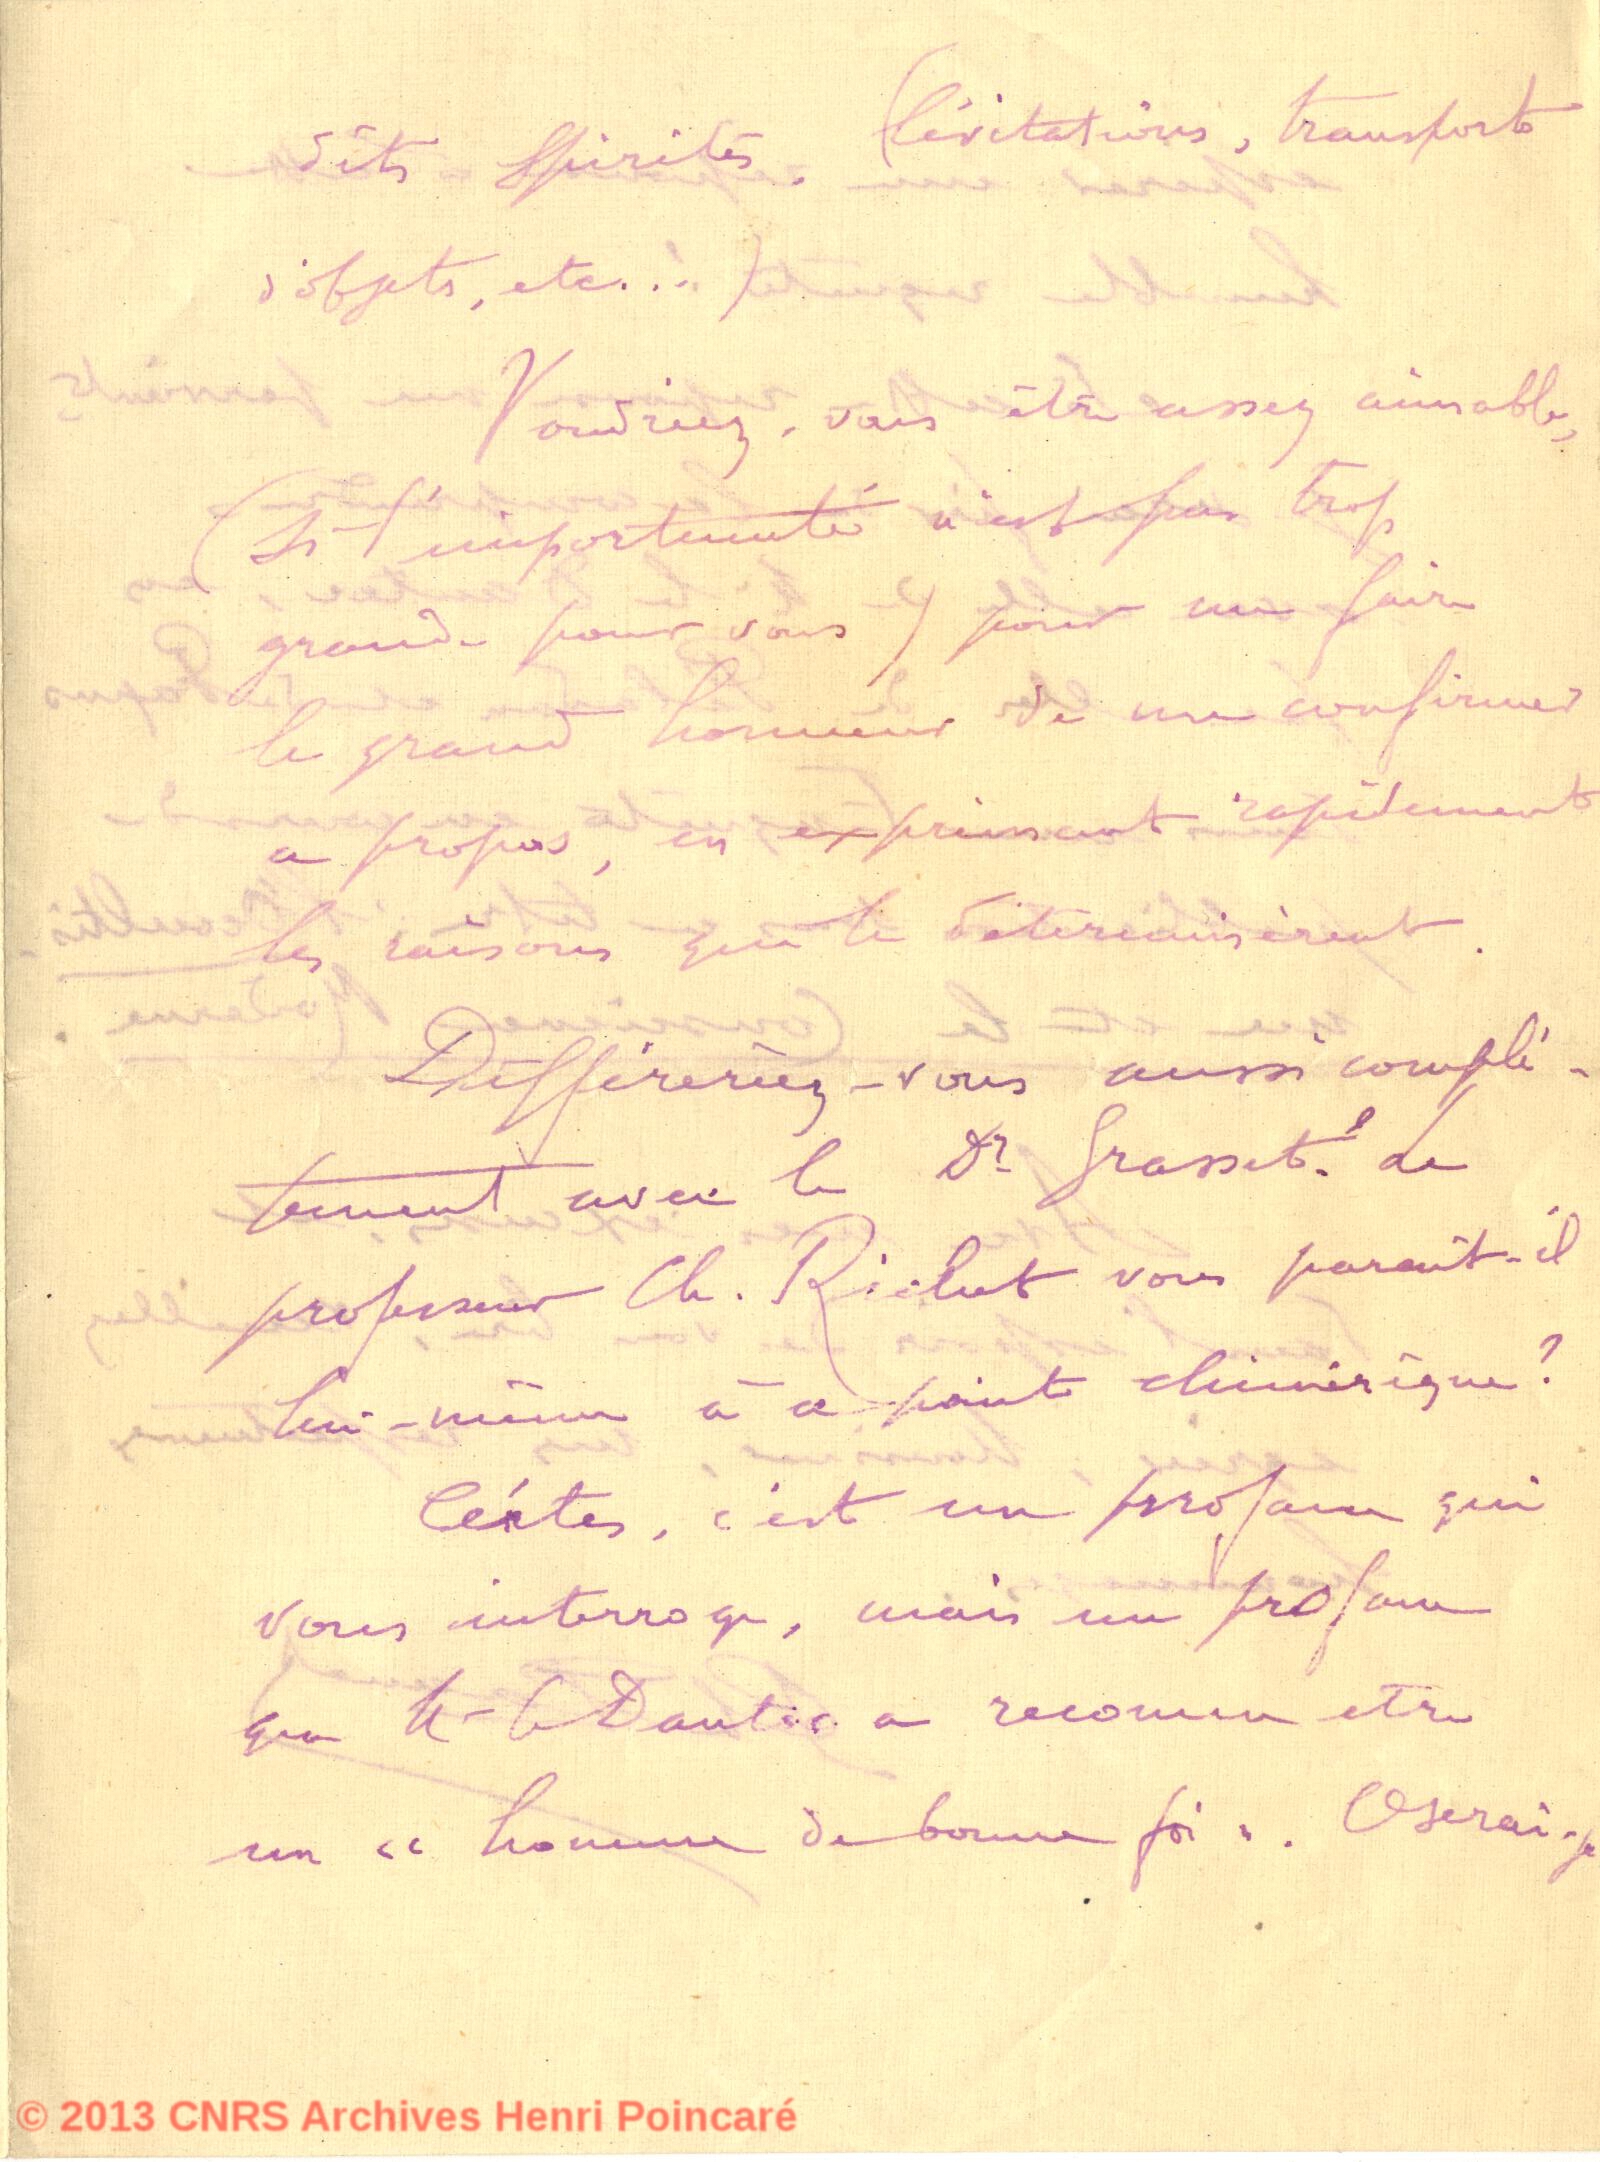 dits spirites. (lévitations, transports
d'objets, etc...)
Voudriez-vous être assez aimable,
(si l'importunité n'est pas trop
grande pour vous) pour me faire
le grand honneur de me confirmer
ce propos, en exprimant rapidement
les raisons qui le déterminèrent.
Différeriez-vous aussi complé-
tement avec le Dr Grasset? Le
professeur Ch. Richet vous parait-il
lui-même à ce point chimérique?
Certes, c'est un profane qui
vous interroge, mais un profane
que M. Le Dantec a reconnu etre
un « homme de bonne foi ». Oserai-je
© 2013 CNRS Archives Henri Poincaré